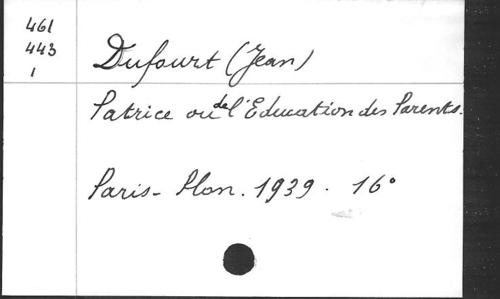 461
443
1
Dufourt (Jean)
Patrice ou de l'Education des Parents.
Paris - Plon. 1939. 16°